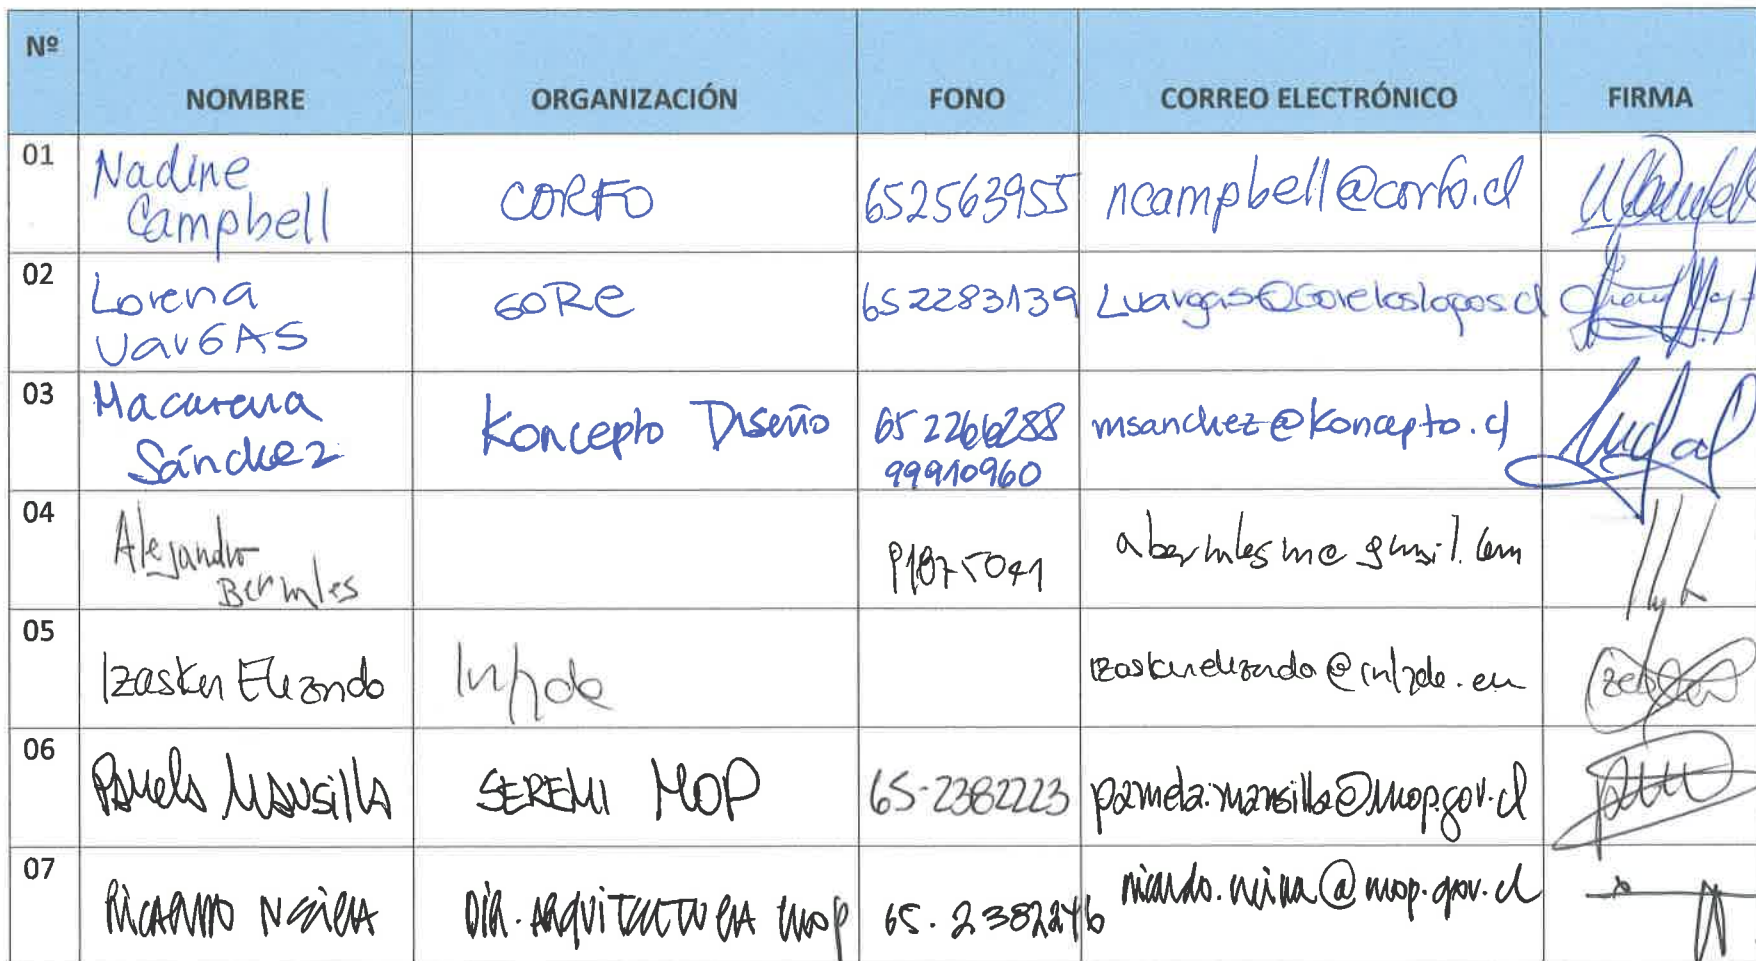 Nº NOMBRE ORGANIZACIÓN FONO CORREO ELECTRÓNICO FIRMA
01 Nadine Campbell CORFO 652563955 ncampbell@corfo.cl
02 Lorena VarGAS GORE 652283139 Lvargas@Goreloslagos.cl
03 Macarena Sánchez Koncepto Diseño 65 2266288 99910960 msanchez@koncepto.cl
04 Alejandro
05 Izaskun Elizondo
06 Pamela Mansilla SEREMI MOP 65-2382223 pamela.mansilla@mop.gov.cl
07 Ricardo Neira DIR. ARQUITECTURA MOP ricardo.neira@mop.gov.cl